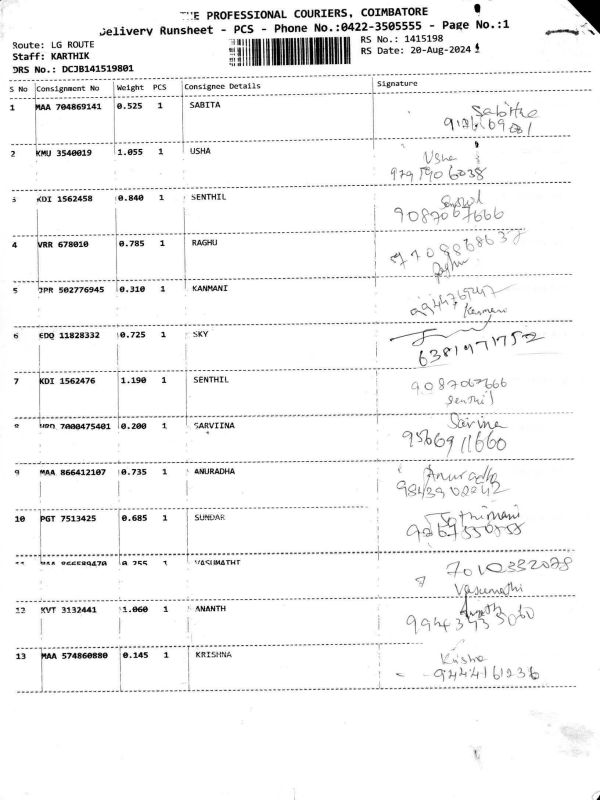 THE PROFESSIONAL COURIERS, COIMBATORE
Delivery Runsheet - PCS - Phone No.:0422-3505555 - Page No.:1
Route: LG ROUTE
RS No.: 1415198
Staff: KARTHIK
RS Date: 20-Aug-2024
DRS No.: DCJB141519801
S No Consignment No Weight PCS Consignee Details Signature
1 MAA 704869141 0.525 1 SABITA
Sabitha
2 KMU 3540019 1.055 1 USHA
Usha
3 KDI 1562458 0.840 1 SENTHIL
Senthil
9087067666
4 VRR 678010 0.785 1 RAGHU
7708868637
Raghu
5 JPR 502776945 0.310 1 KANMANI
Kanmani
6 EDQ 11828332 0.725 1 SKY
6381971752
7 KDI 1562476 1.190 1 SENTHIL
9087067666
Senthil
8 HRD 7000475401 0.200 1 SARVIINA
Sarvina
9566911660
9 MAA 866412107 0.735 1 ANURADHA
Anuradha
10 PGT 7513425 0.685 1 SUNDAR
Jothimani
11 MAA 866589470 0.255 1 VASUMATHI
7010332078
Vasumathi
12 KVT 3132441 1.060 1 ANANTH
Ananth
13 MAA 574860880 0.145 1 KRISHNA
Krisha
9444161236